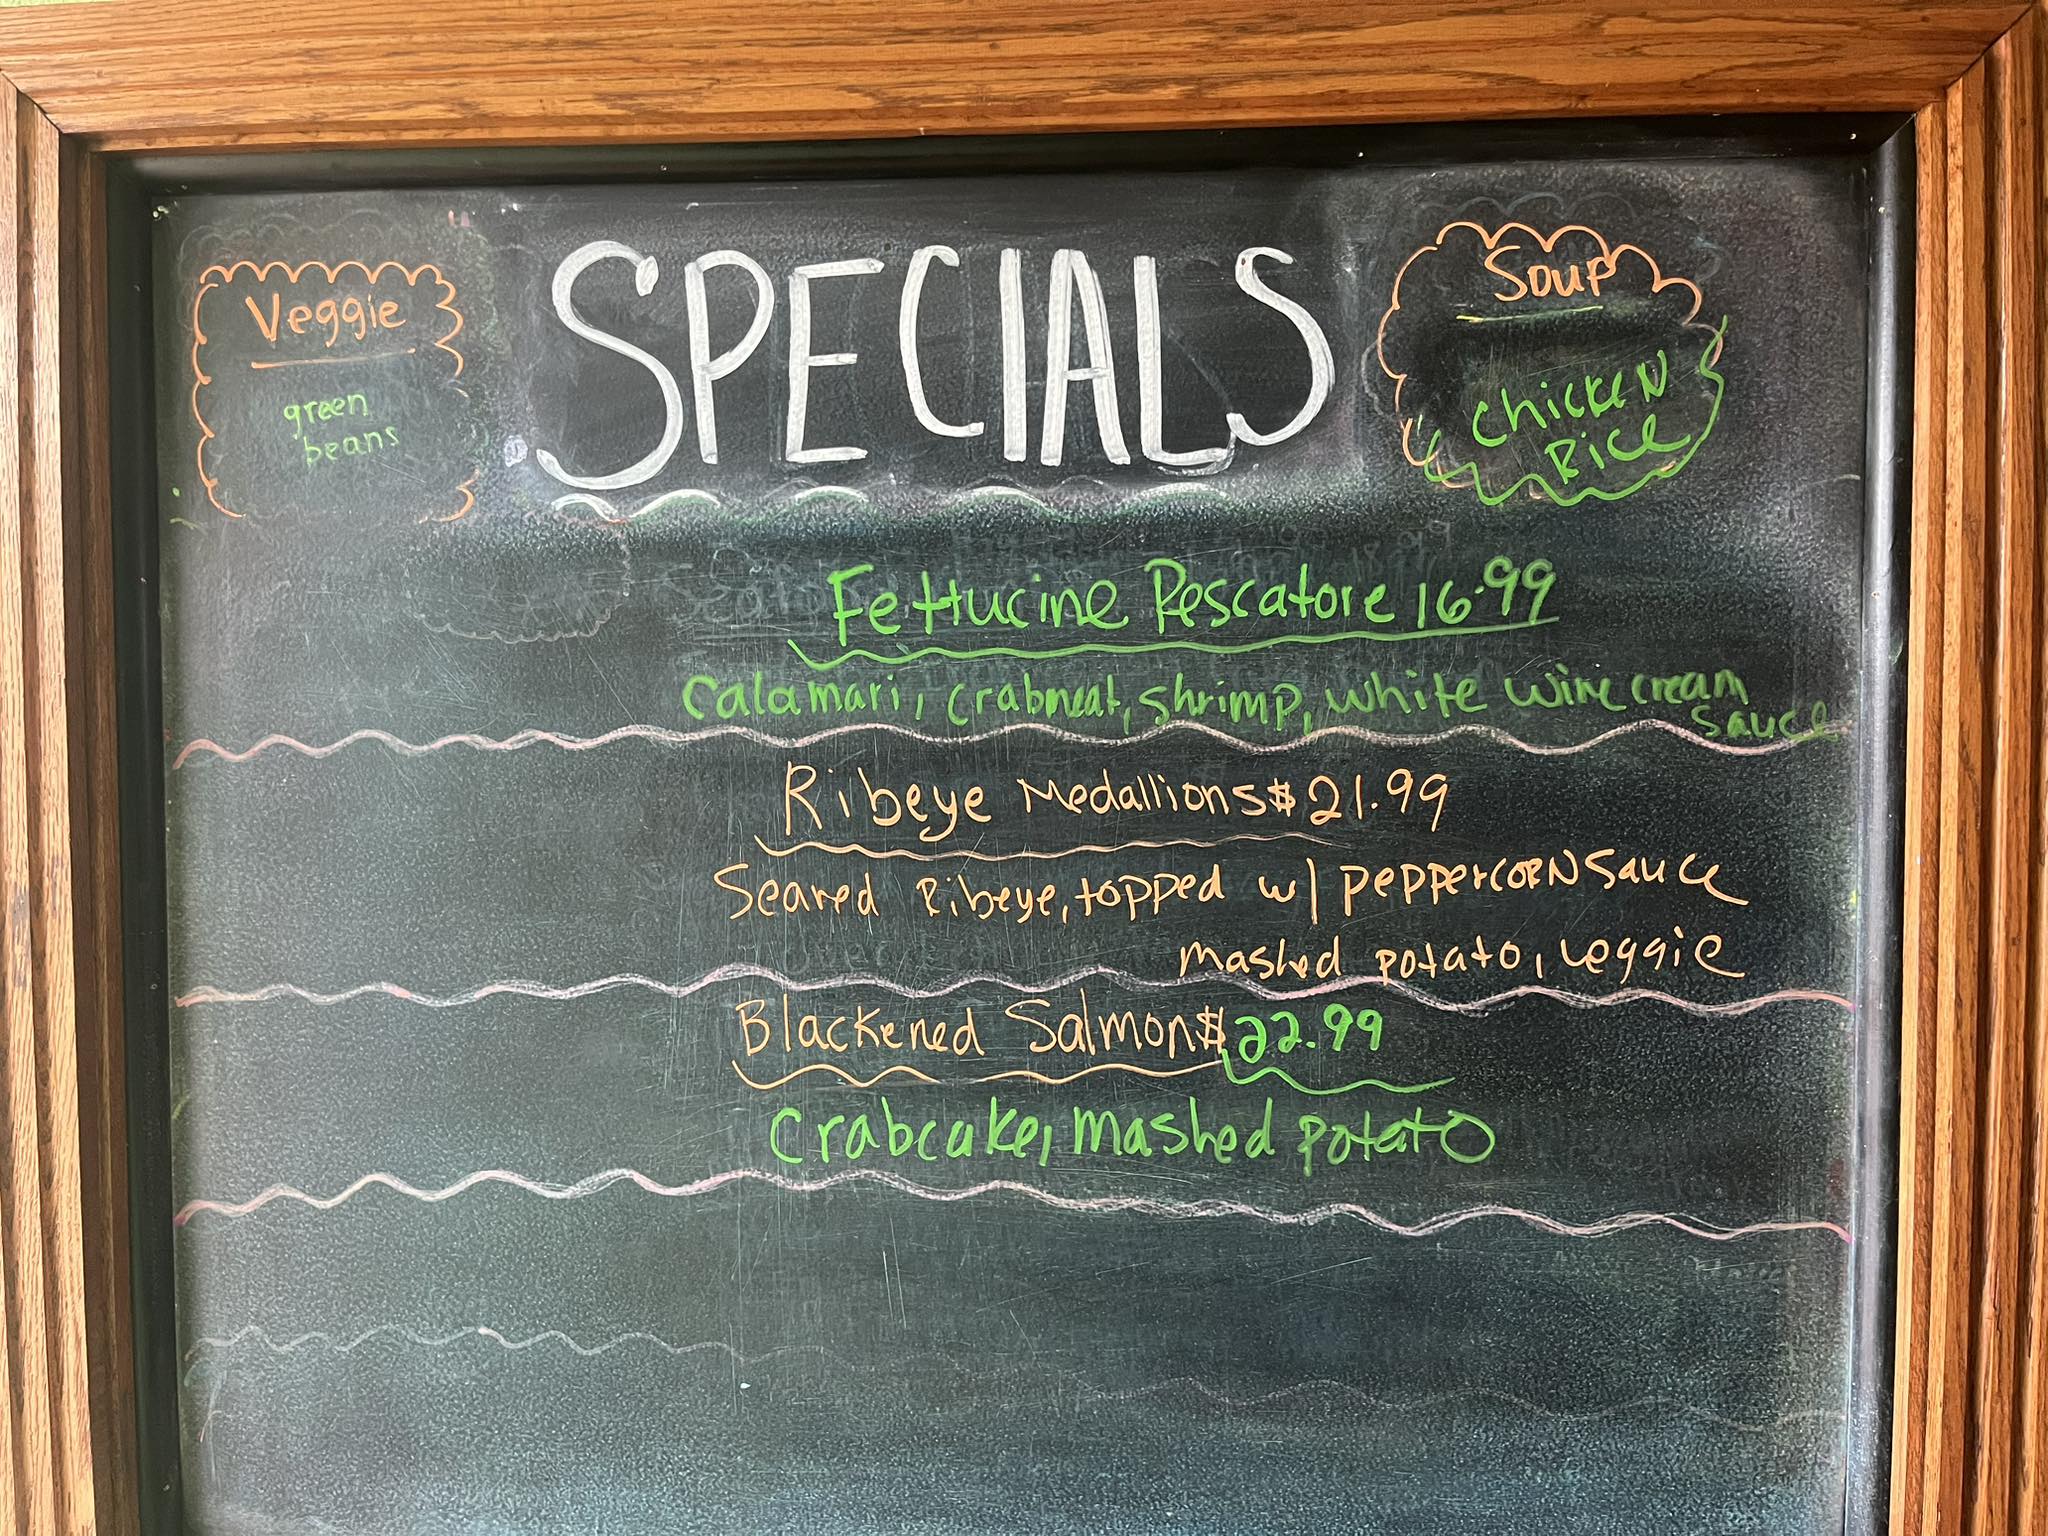 SPECIALS
Veggie
green
beans
Soup
Chicken
Rice
Fettucine Pescatore 16.99
Calamari, crabmeat, shrimp, white wine cream
sauce
Ribeye Medallions $21.99
Seared Ribeye, topped w/ peppercorn sauce
mashed potato, veggie
Blackened Salmon $22.99
Crabcake, mashed potato